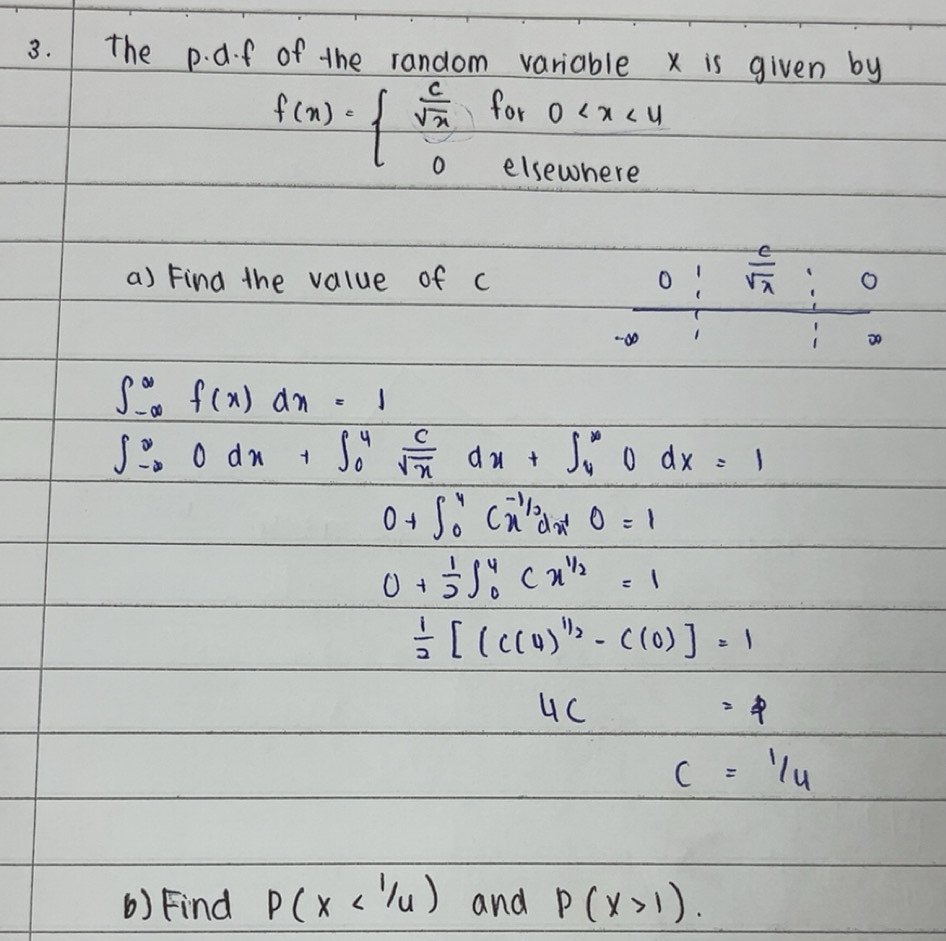 3. The p.d.f of the random variable x is given by
f(x) = { c/√x for 0 < x < 4
0 elsewhere
a) Find the value of c
0 c/√x 0
-∞ ∞
∫_{-∞}^{∞} f(x) dx = 1
∫_{-∞}^{∞} 0 dx + ∫_0^4 c/√x dx + ∫_4^∞ 0 dx = 1
0 + ∫_0^4 Cx^{-1/2} dx + 0 = 1
0 + 1/2 ∫_0^4 C x^{1/2} = 1
1/2 [ (C(4)^{1/2} - C(0) ] = 1
4C = 1
C = 1/4
b) Find P(X < 1/4) and P(X > 1).